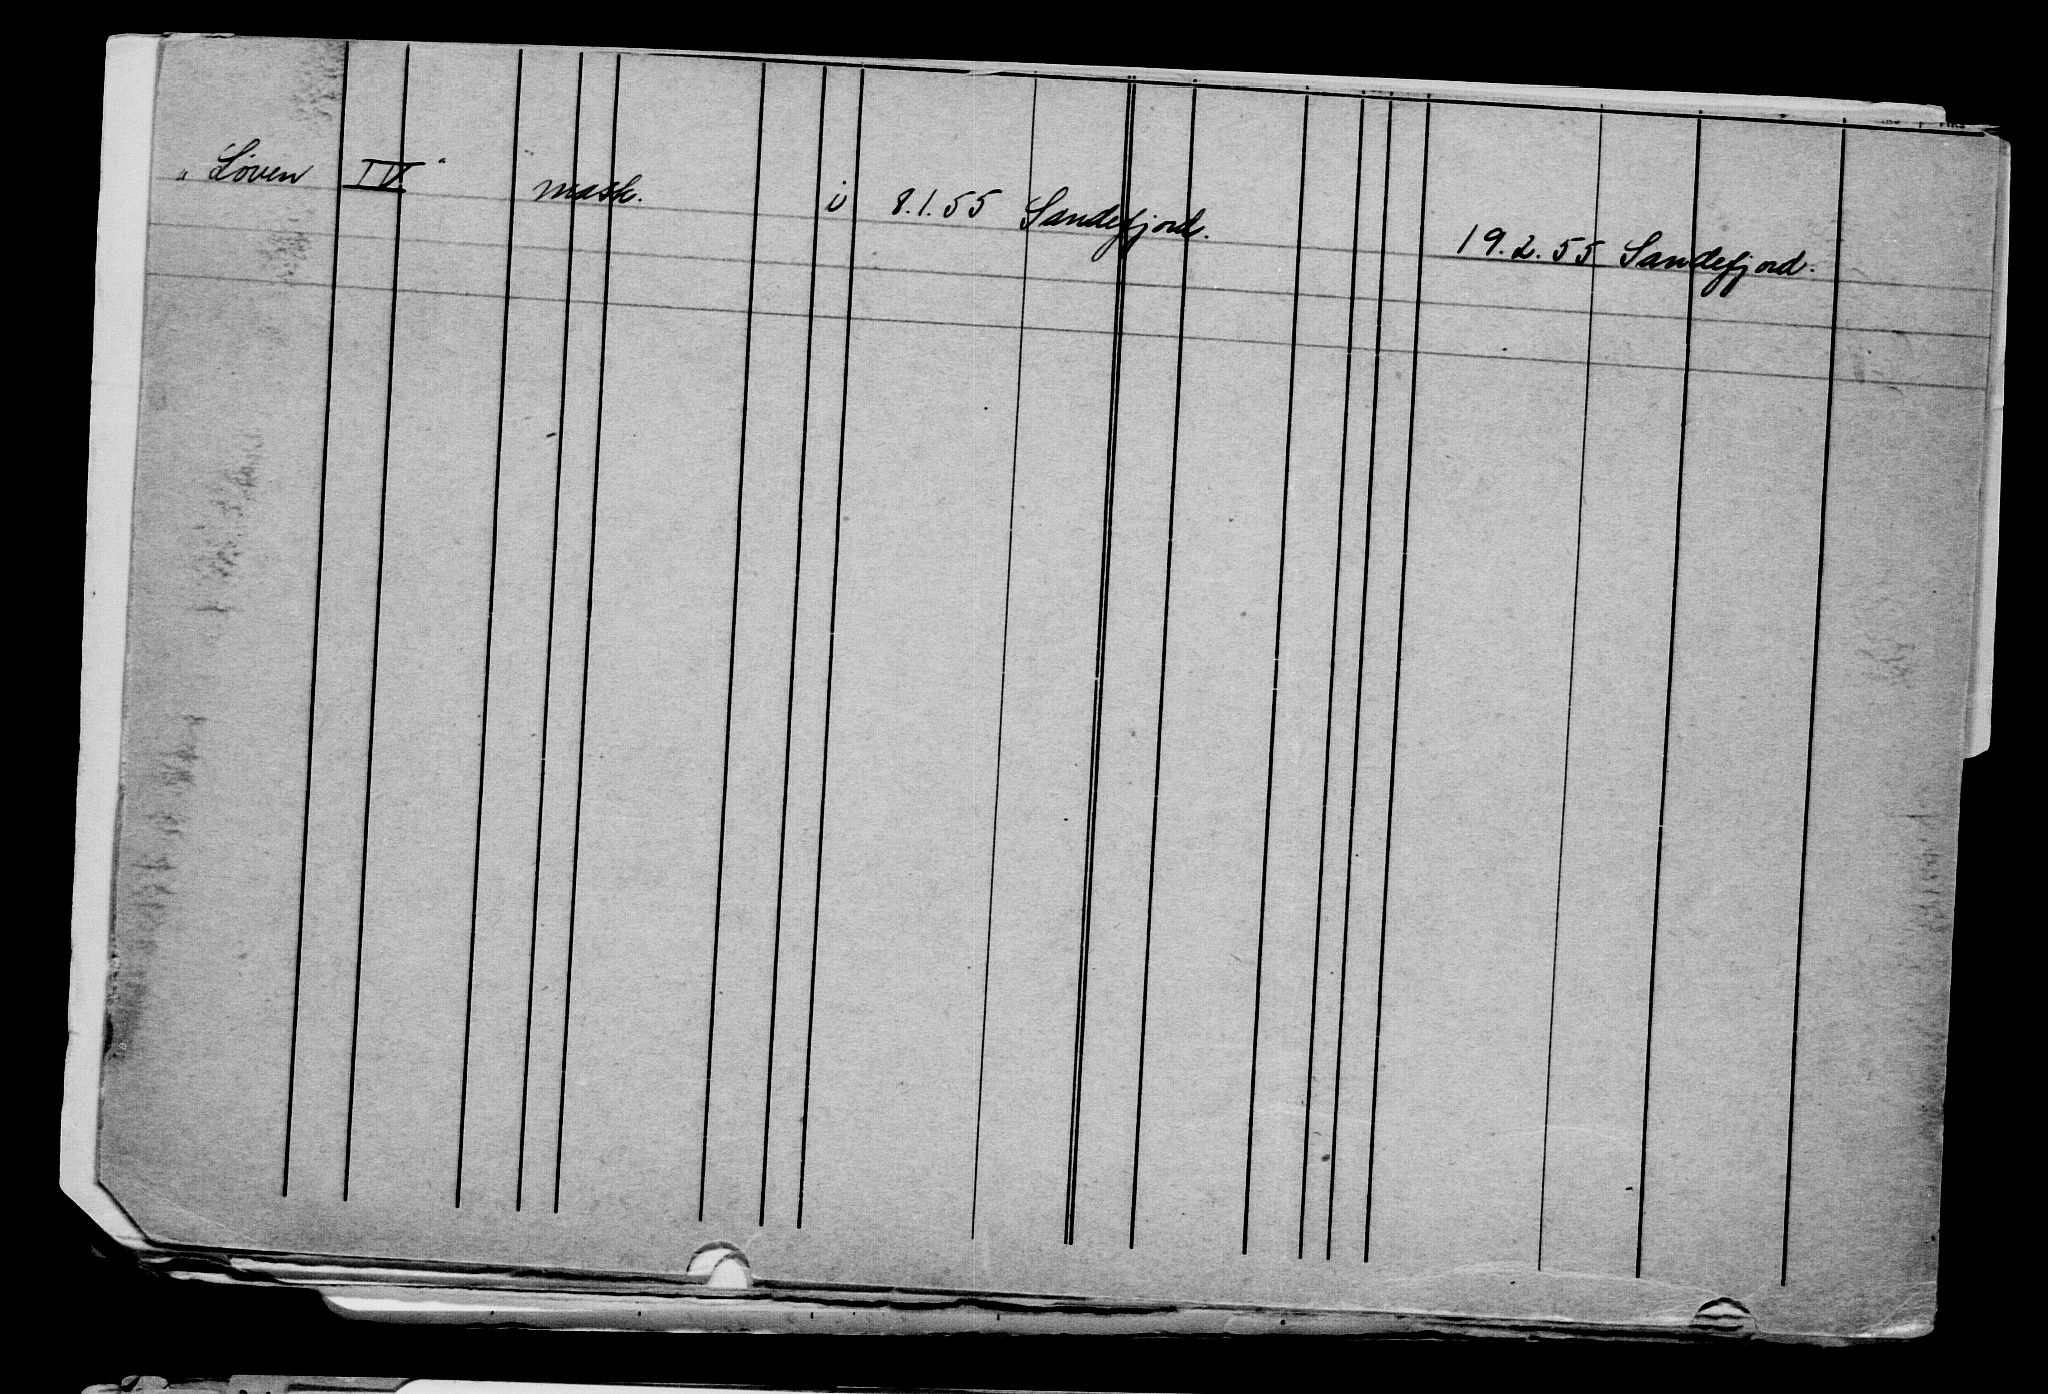 "Løven IV" mask. i 8.1.55 Sandefjord. 19.2.55 Sandefjord.